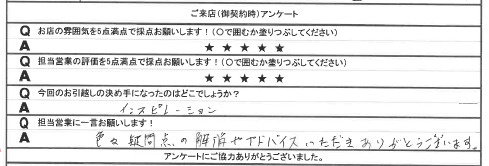 ご来店(御契約時)アンケート
Q お店の雰囲気を5点満点で採点お願いします!(〇で囲むか塗りつぶしてください)
A ★★★★★
Q 担当営業の評価を5点満点で採点お願いします!(〇で囲むか塗りつぶしてください)
A ★★★★★
Q 今回のお引越しの決め手になったのはどこでしょうか?
A インスピレーション
Q 担当営業に一言お願いします!
A 色々疑問点の解消やアドバイスいただきありがとうございます。
アンケートにご協力ありがとうございました。